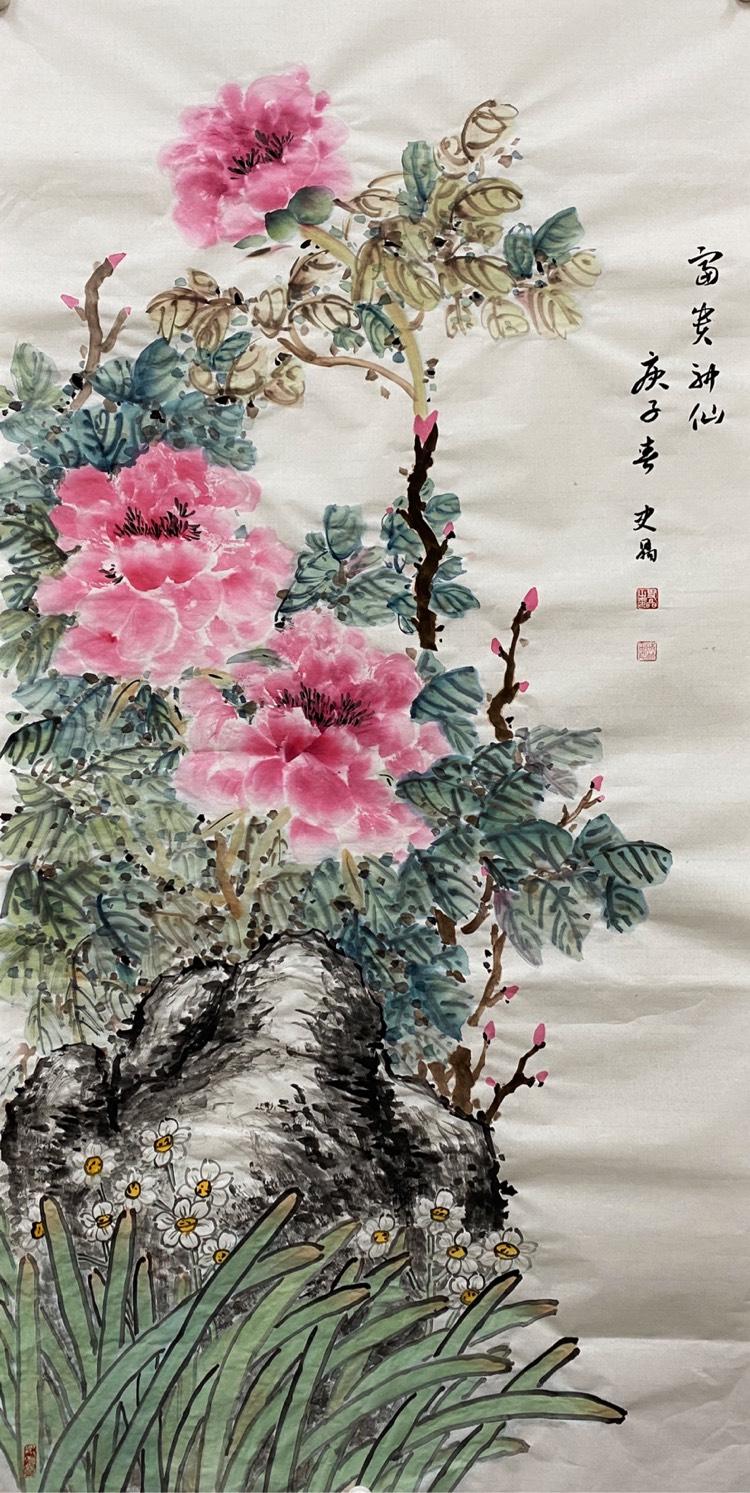 富贵神仙
庚子春 史晶